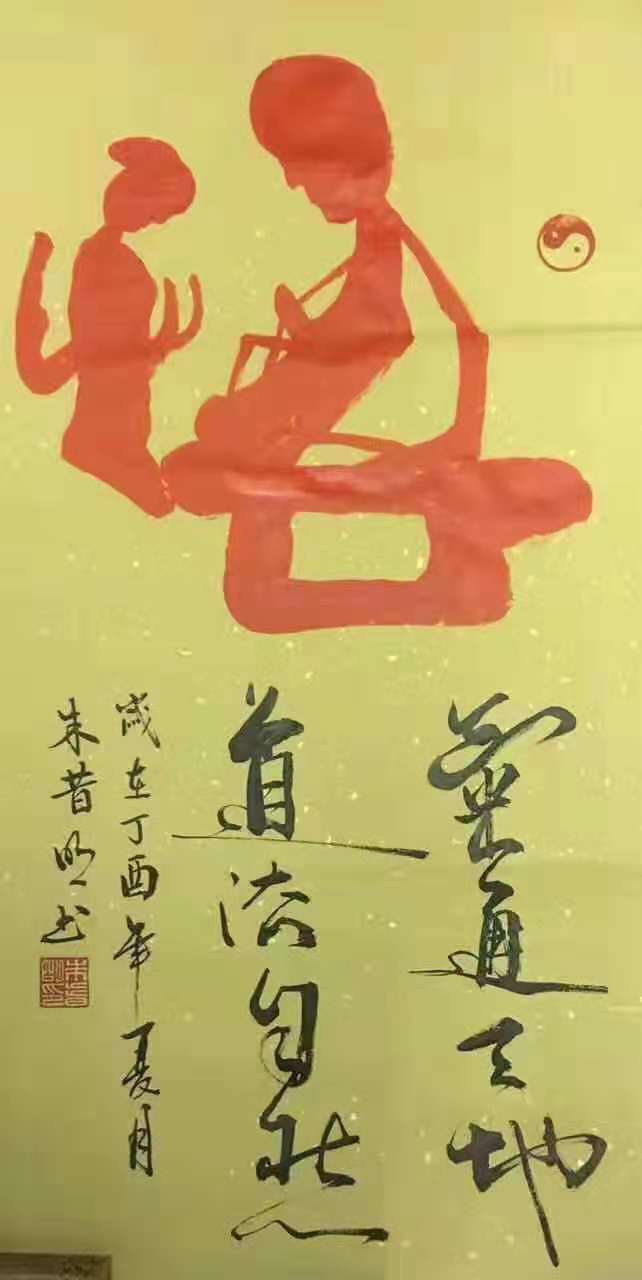 靈通天地
道法自然
岁在丁酉年夏月
朱昔明书